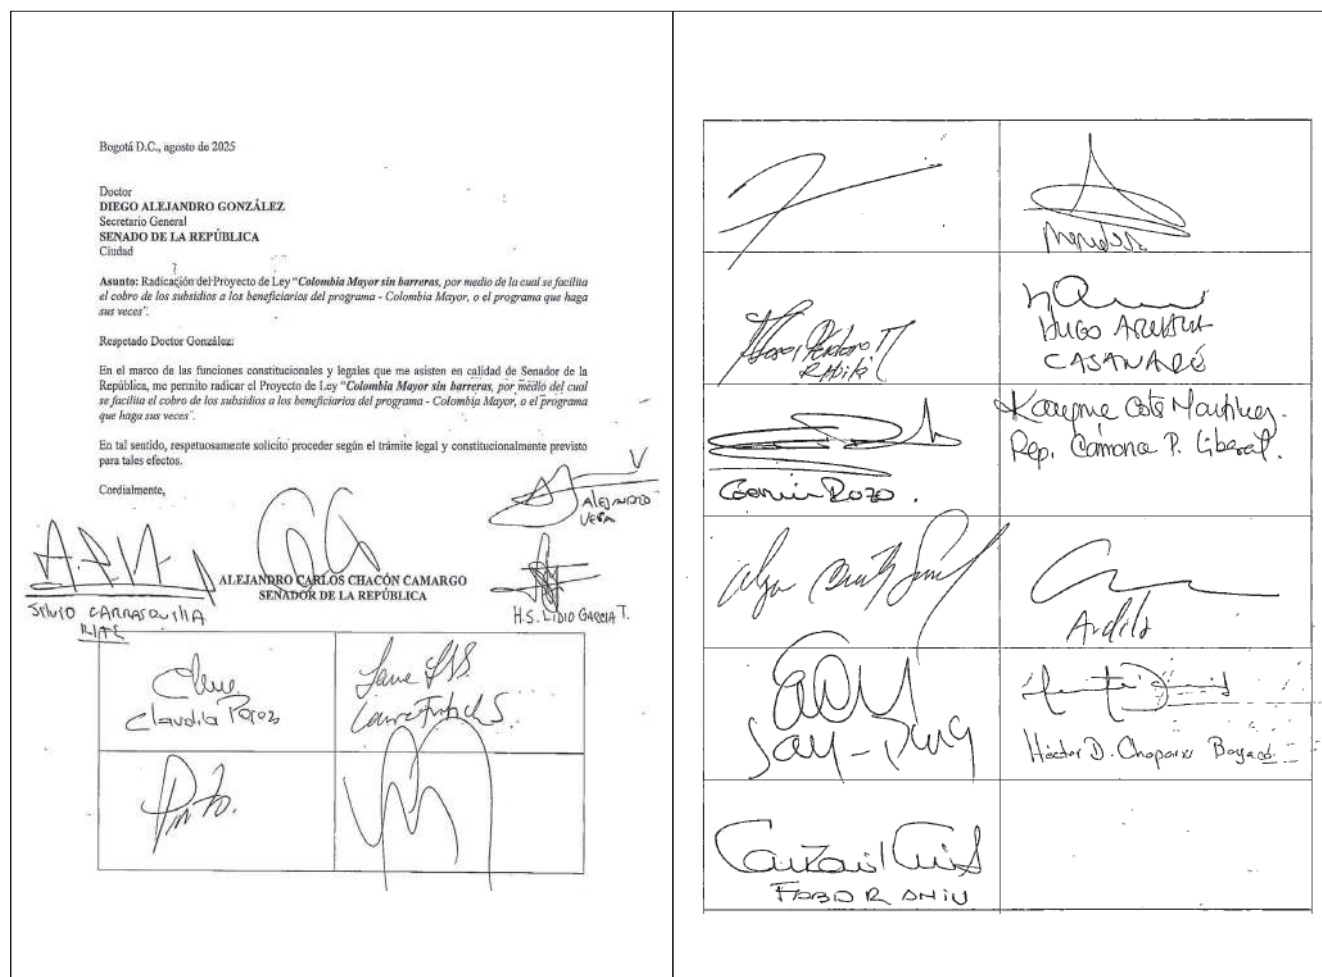 Bogotá D.C., agosto de 2025
Doctor
DIEGO ALEJANDRO GONZÁLEZ
Secretario General
SENADO DE LA REPÚBLICA
Ciudad
Asunto: Radicación del Proyecto de Ley "Colombia Mayor sin barreras, por medio de la cual se facilita
el cobro de los subsidios a los beneficiarios del programa - Colombia Mayor, o el programa que haga
sus veces".
Respetado Doctor González:
En el marco de las funciones constitucionales y legales que me asisten en calidad de Senador de la
República, me permito radicar el Proyecto de Ley "Colombia Mayor sin barreras, por medio del cual
se facilita el cobro de los subsidios a los beneficiarios del programa - Colombia Mayor, o el programa
que haga sus veces".
En tal sentido, respetuosamente solicito proceder según el trámite legal y constitucionalmente previsto
para tales efectos.
Cordialmente,
ALEJANDRO
VEGA
ALEJANDRO CARLOS CHACÓN CAMARGO
SENADOR DE LA REPÚBLICA
SILVIO CARRASQUILLA
H.S. LIDIO GARCIA T.
Claudia Perez
Pinto.
HUGO
CASANARE
Karyme Cotes Martínez.
Rep. Camara P. Liberal.
Rozo.
Ardila
Say-
Héctor D. Chaparro Boyacá